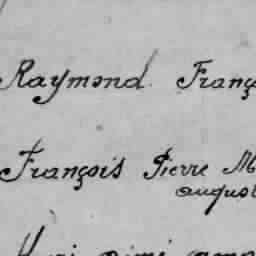 Raymond Franç
François Pierre M
august